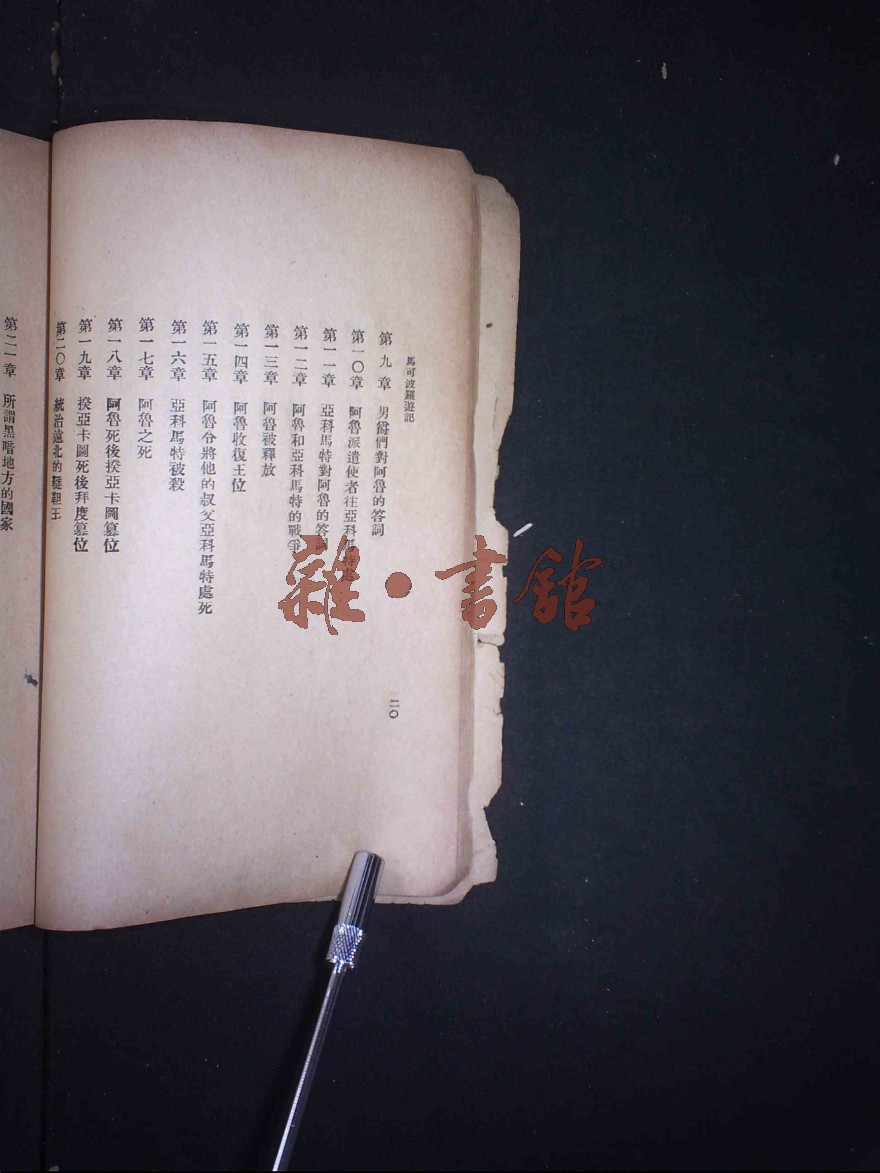 馬可波羅遊記
第九章 男爵們對阿魯的答詞
第一〇章 阿魯派遣使者往亞科馬特處
第一一章 亞科馬特對阿魯的答詞
第一二章 阿魯和亞科馬特的戰爭
第一三章 阿魯被釋放
第一四章 阿魯收復王位
第一五章 阿魯令將他的叔父亞科馬特處死
第一六章 亞科馬特被殺
第一七章 阿魯之死
第一八章 阿魯死後揆亞卡圖篡位
第一九章 揆亞卡圖死後拜度篡位
第二〇章 統治遠北的韃靼王
二〇
第二一章 所謂黑暗地方的國家
雜·書館